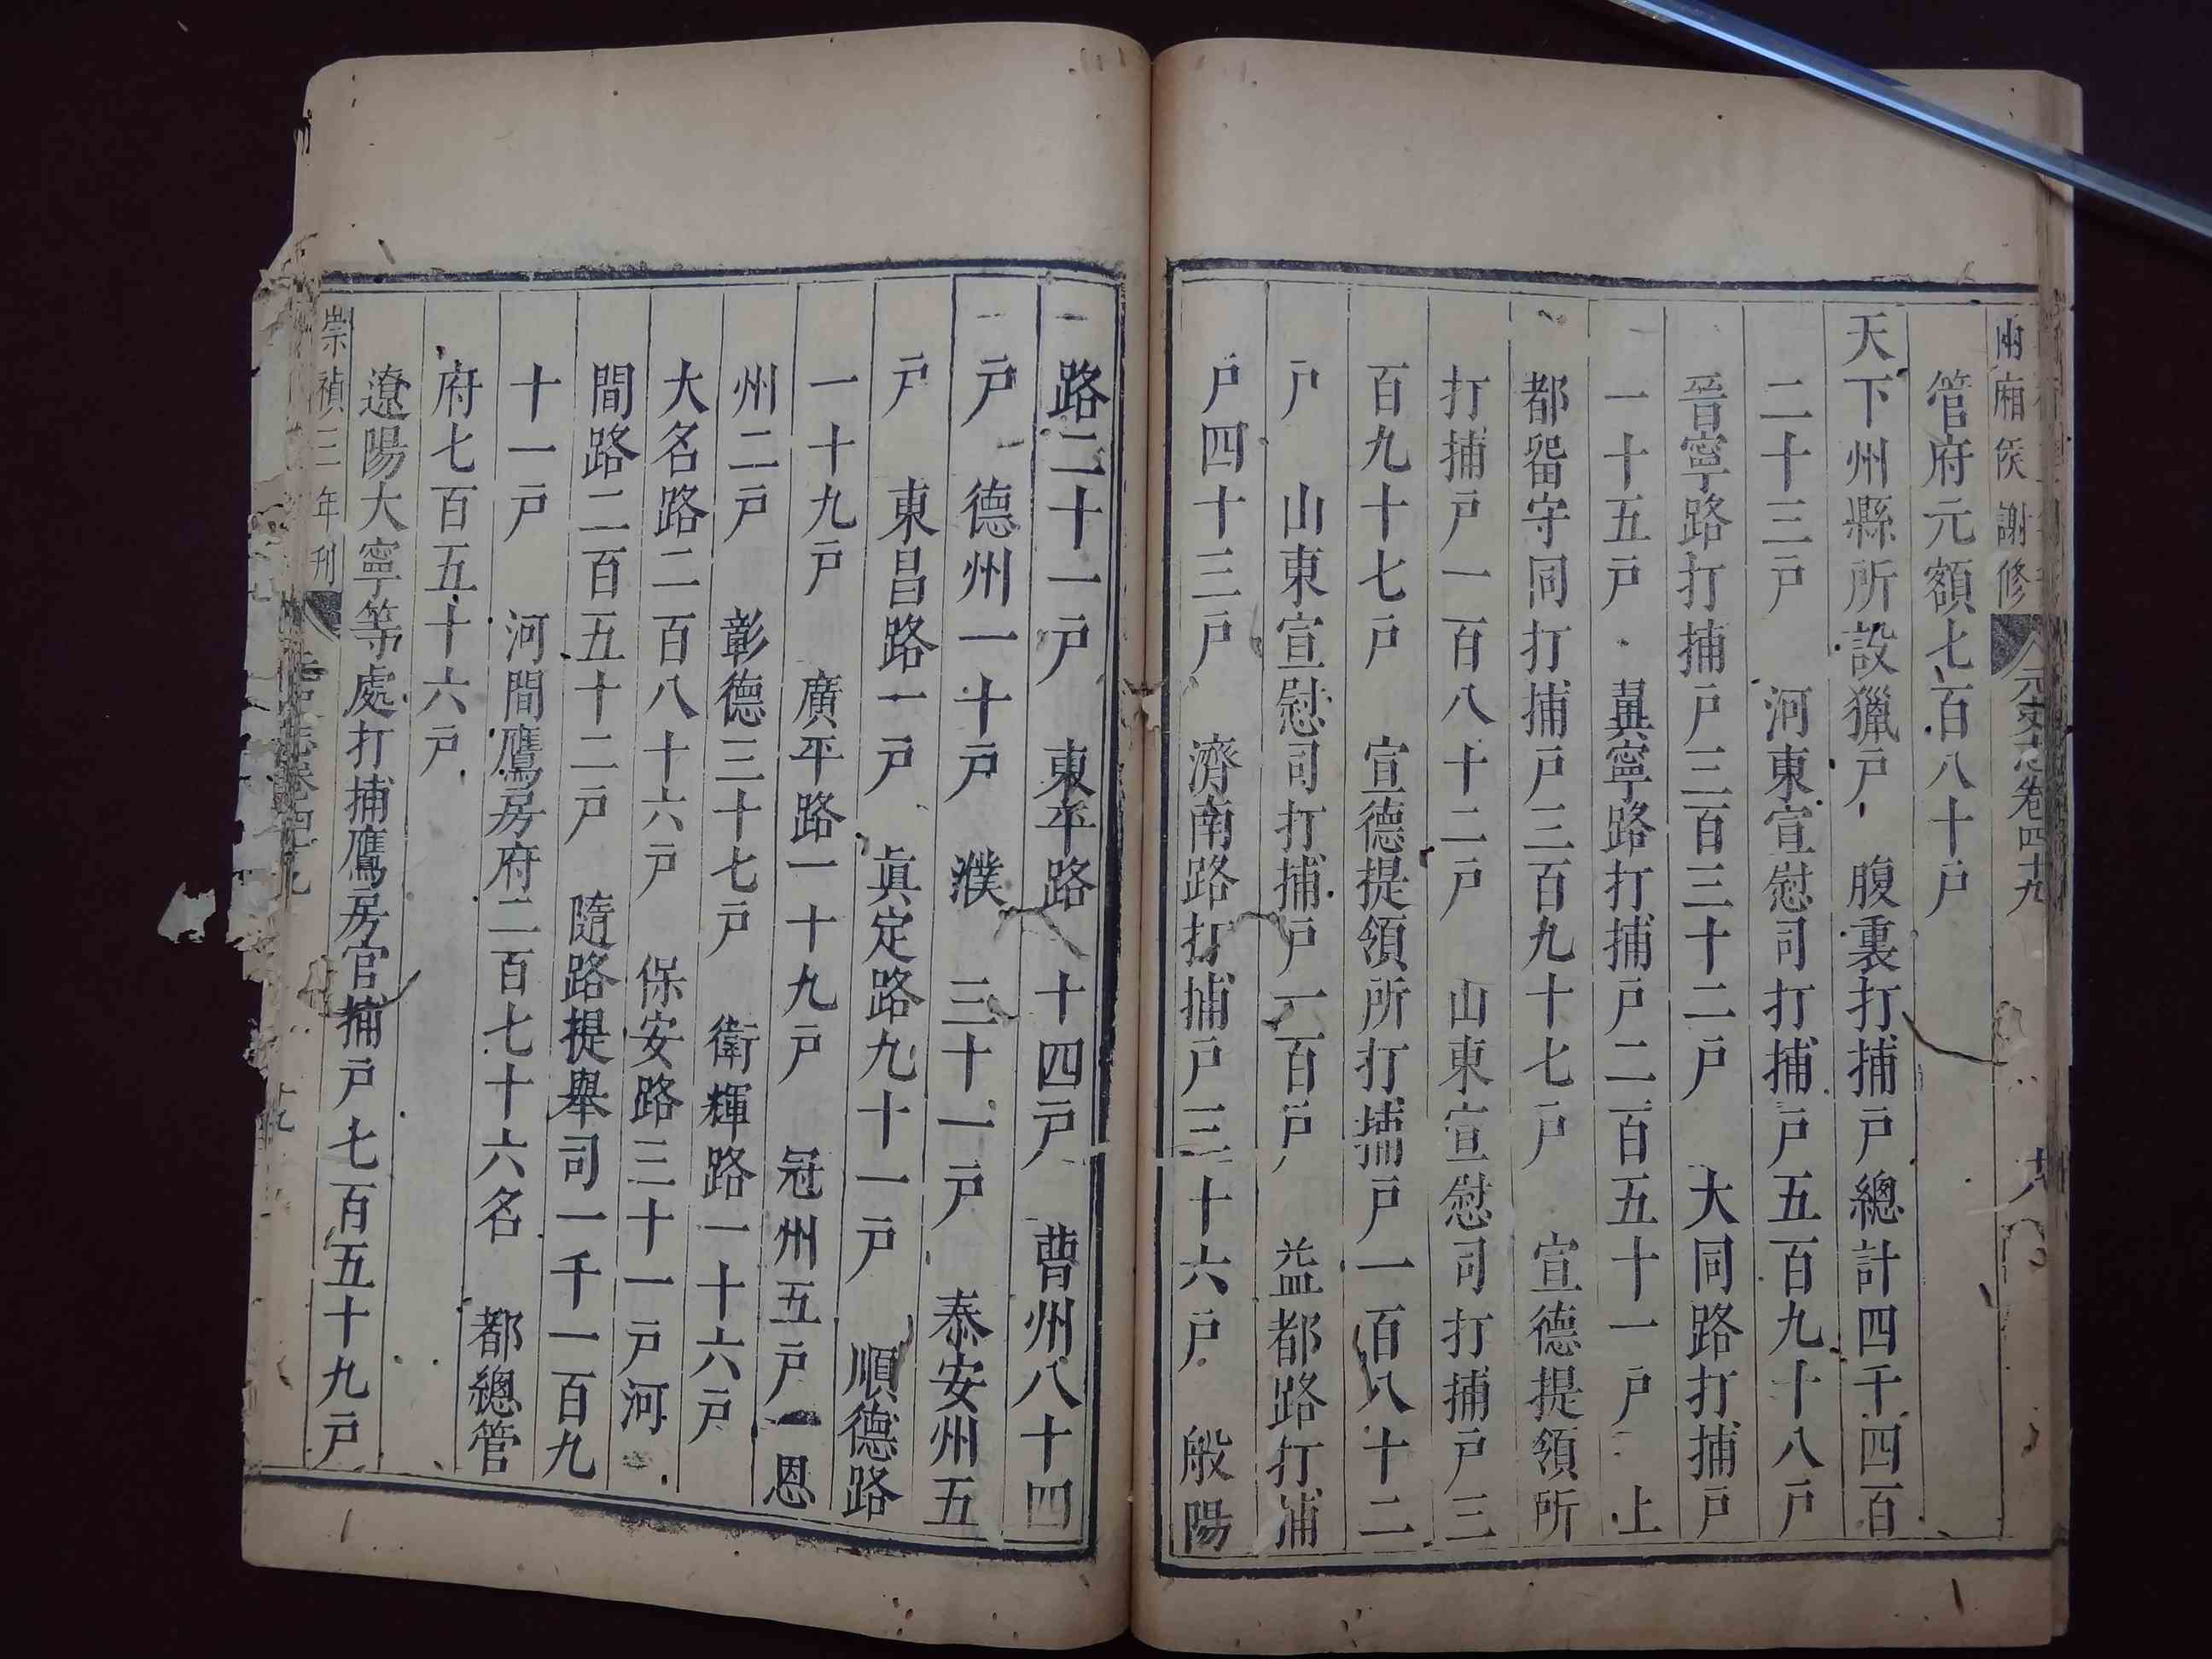 兩廂侯謝修 元史志卷四十九
管府元額七百八十戶
天下州縣所設獵戶 腹裏打捕戶總計四千四百
二十三戶 河東宣慰司打捕戶五百九十八戶
晉寧路打捕戶三百三十二戶 大同路打捕戶
一十五戶 冀寧路打捕戶二百五十一戶 上
都畱守同打捕戶三百九十七戶 宣德提領所
打捕戶一百八十二戶 山東宣慰司打捕戶三
百九十七戶 宣德提領所打捕戶一百八十二
戶 山東宣慰司打捕戶一百戶 益都路打捕
戶四十三戶 濟南路打捕戶三十六戶 般陽
路二十一戶 東平路 十四戶 曹州八十四
戶 德州一十戶 濮 三十一戶 泰安州五
戶 東昌路一戶 眞定路九十一戶 順德路
一十九戶 廣平路一十九戶 冠州五戶 恩
州二戶 彰德三十七戶 衛輝路一十六戶
大名路二百八十六戶 保安路三十一戶 河
間路二百五十二戶 隨路提舉司一千一百九
十一戶 河間鷹房府二百七十六名 都總管
府七百五十六戶
遼陽大寧等處打捕鷹房官捕戶七百五十九戶
崇禎三年刊 志卷四十九